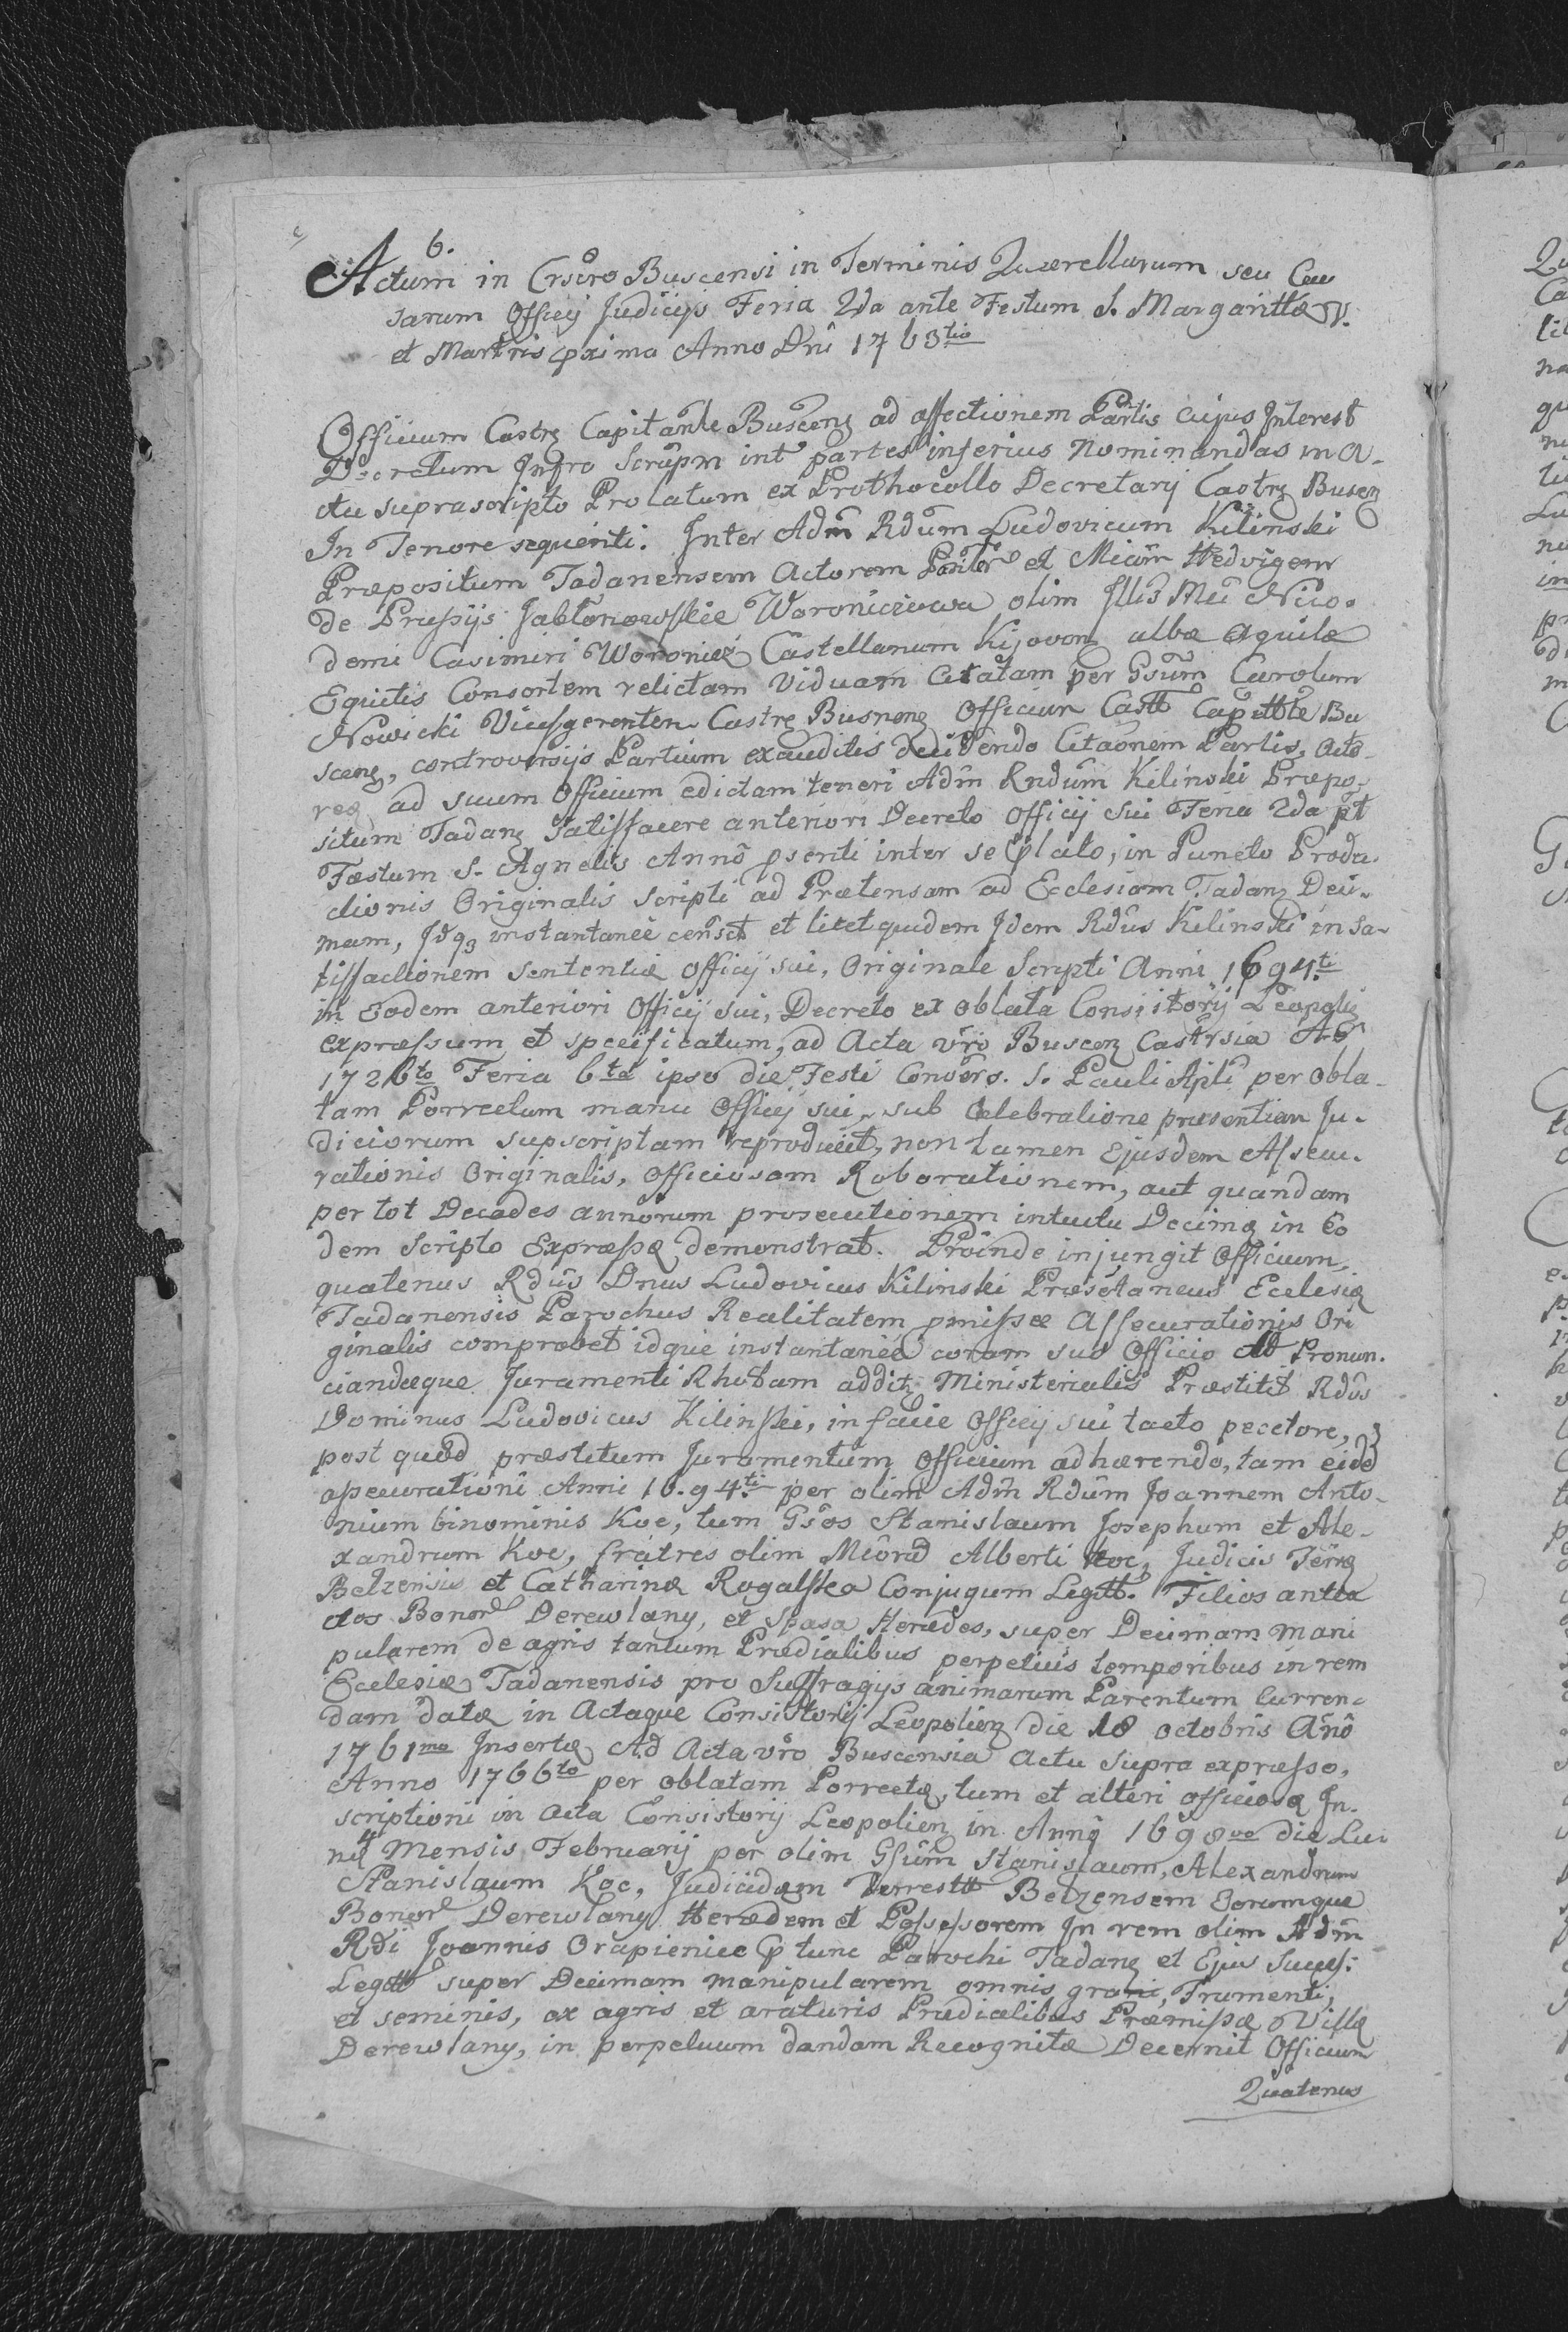 6.
Actum in Crsťro Buscensi in Terminis Quærellarum seu Cau
sarum Officij Judicijs Feria 2da ante Festum S. Margarittæ V.
et Martris pxima Anno Dni 1763tio
Officium Castrz Capitanle Buscenz ad affectionem Partis cujus Interest
Decretum Infro Scrupm int partes inferius nominandas in a-
ctu suprascripto Prolatum ex Prothocollo Decretarij Castrz Buscz
In Tenore sequenti. Inter Adm Rdum Ludovicum Kilinski
Præpositum Tadanensem Actorem Pariter et Micam Hedvigem
de Prussijs Jabłonowskie Woroniczowa olim Illis Mci Nico-
demi Casimiri Woronicz Castellanum Kijoven albæ aquilæ
Equitis Consortem relictam Viduam Citatam per Gsum Carolum
Nowicki Vicesgerenten Castrz Busnenz Officium Castt Capittle Bu
scenz, controversijs Partium exauditis decidendo Citaonem Partis, acto-
reæ ad suum Officium edictam teneri Adm Rndum Kilinski Præpo-
situm Tadanz satisfacere anteriori Decreto Officij sui Feria 2da pt
Fæstum S. Agnetis Anno psenti inter se plato, in Puncto Produ-
ctionis Originalis Scripti ad Prætensam ad Ecclesiam Tadanz Deci-
mam, Idq3 instantaneè censet et licet quidem Idem Rdus Kilinski in sa-
tisfactionem sententiæ officij sui, Originale Scripti Anni 1694.ti
in eodem anteriori Officij sui, Decreto ex oblata Consistorij Leopolis
expressum et specificatum, ad Acta vro Buscenz Castrsia Ao
1726to Feria 6ta ipso die Festi Convers. S. Pauli Apli per obla-
tam Porrectum manu Officij sui, sub Celebratione præsentium Ju-
diciorum supscriptam reproducit, non tamen Ejusdem Assecu-
rationis Originalis, officiosam Roborationem, aut quandam
per tot Decades annorum prosecutionem intuitu Decimæ in Eo
dem Scripto Expressæ demonstrat. Proinde injungit officium,
quatenus Rdus Dnus Ludovicus Kilinski Præsetaneus Ecclesiæ
Tadanensis Parochus Realitatem pmissæ Assecurationis Ori
ginalis comprobet idque instantaneè coram suo Officio Ad Pronun-
ciandæque Juramenti Rhotam addit Ministerialis Præstitit Rdus
Dominus Ludovicus Kilinski, in facie officij sui tacto pecctore,
post quod præstitum juramentum Officium adhærendo, tam eid
assecurationi Anni 16.94.ti per olim Adm Rdum Joannem Anto-
nium binominis Koc, tum Gsos Stanislaum Josephum et Ale-
xandrum Koc, fratres olim Micord Alberti Koc, Judicis Terræ
Belzensis et Catharinæ Rogalska Conjugum Legtt. Filios anted
ctos Bonor Derewlany, et Spasa Hæredes, super Decimam mani
pularem de agris tantum Prædialibus perpetuis temporibus in rem
Ecclesiæ Tadanensis pro Suffragijs animarum Parentum curren-
dam datæ in Actaque Consistorij Leopolien die 18 octobris Ano
1761mo Insertæ Ad Acta vro Buscensia actu supra expresso,
Anno 1766to per oblatam Porrectæ, tum et alteri officiosæ In-
scriptioni in acta Consistorij Leopolien in Anno 1698vo die Lu-
næ 4 Mensis Februarij per olim Gsum Stanislaum, Alexandrum
Stanislaum Koc, Judicidem Terrestt Belzensem Eorumque
Bonor Derewlany Hæredem et Possessorem In rem olim Adm
Rdi Joannis Orapieniec p tunc Parochi Tadanz et Ejus Success:
Legtt super Decimam manipularem omnis grani, Frumenti,
et seminis, ex agris et araturis Prædialibus Præmissæ Villæ
Derewlany, in perpetuum dandam Recognitæ Decernit Officium
Quatenus